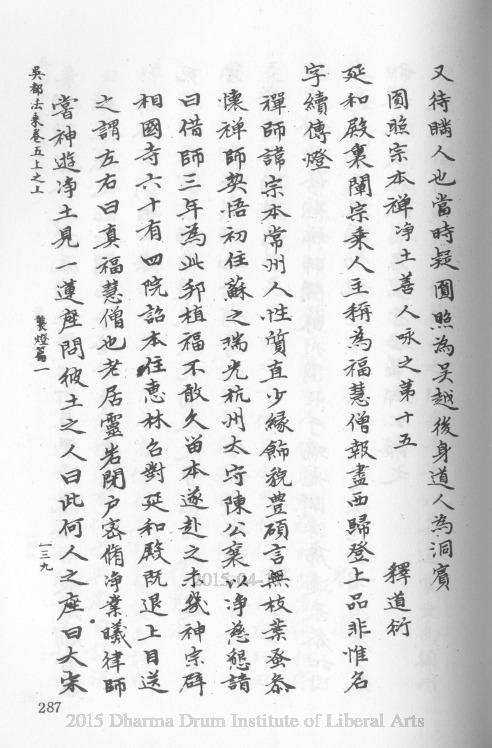 又待瞞人也當時疑圓照為吴越後身道人為洞賓
圓照宗本禅浄土善人咏之第十五 釋道衍
延和殿裏闡宗乗人主稱為福慧僧報盡西歸登上品非惟名
字續傳燈
禪師諱宗本常州人性質直少緣飾貌豊碩言無枝葉蚤叅
懷禅師契悟初住蘇之瑞光杭州太守陳公襄以浄慈懇請
曰借師三年為此邦植福不敢久留本遂赴之未幾神宗闢
相國寺六十有四院詔本住恵林召對延和殿既退上目送
之謂左右曰真福慧僧也老居靈岩閉户宻脩浄業曦律師
嘗神遊浄土見一蓮座問彼土之人曰此何人之座曰大宋
吳都法乗卷五上之上
襲燈篇一
一三九
287
2015 Dharma Drum Institute of Liberal Arts